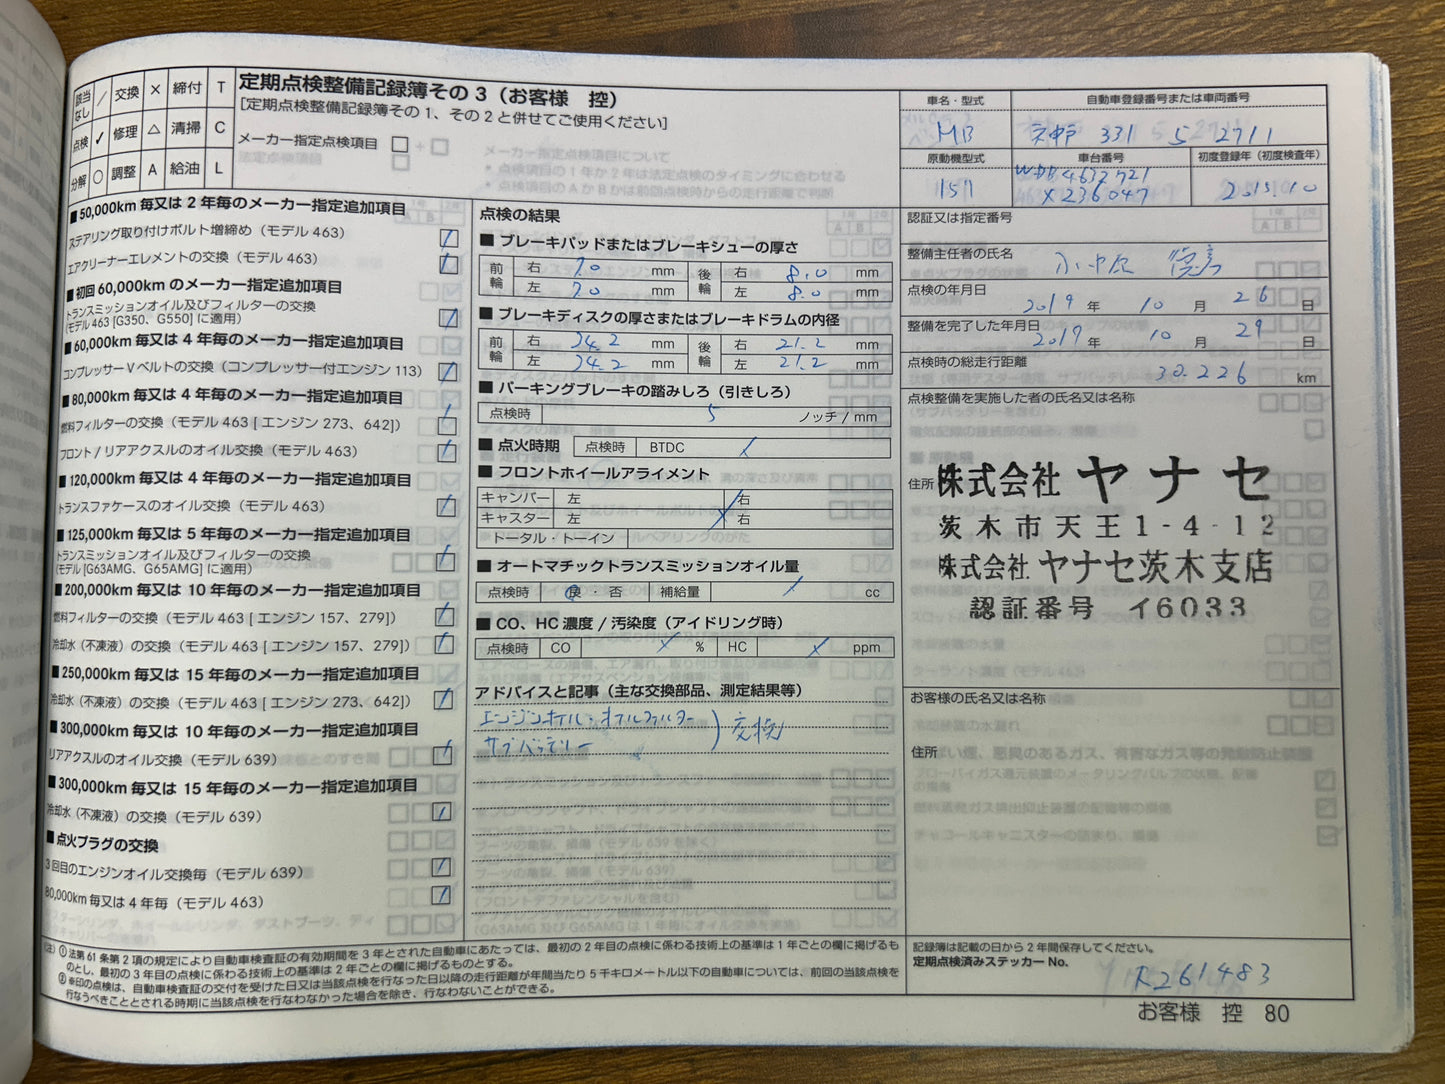 該当なし / 交換 × 締付 T
点検 ✓ 修理 △ 清掃 C
分解 ○ 調整 A 給油 L
定期点検整備記録簿その3（お客様 控）
[定期点検整備記録簿その1、その2と併せてご使用ください]
メーカー指定点検項目 □ + □
■50,000km毎又は2年毎のメーカー指定追加項目
ステアリング取り付けボルト増締め（モデル463）
エアクリーナーエレメントの交換（モデル463）
■初回60,000kmのメーカー指定追加項目
トランスミッションオイル及びフィルターの交換
（モデル463 [G350、G550] に適用）
■60,000km毎又は4年毎のメーカー指定追加項目
コンプレッサーVベルトの交換（コンプレッサー付エンジン113）
■80,000km毎又は4年毎のメーカー指定追加項目
燃料フィルターの交換（モデル463 [ エンジン273、642]）
フロント / リアアクスルのオイル交換（モデル463）
■120,000km毎又は4年毎のメーカー指定追加項目
トランスファケースのオイル交換（モデル463）
■125,000km毎又は5年毎のメーカー指定追加項目
トランスミッションオイル及びフィルターの交換
（モデル [G63AMG、G65AMG] に適用）
■200,000km毎又は10年毎のメーカー指定追加項目
燃料フィルターの交換（モデル463 [ エンジン157、279]）
冷却水（不凍液）の交換（モデル463 [ エンジン157、279]）
■250,000km毎又は15年毎のメーカー指定追加項目
冷却水（不凍液）の交換（モデル463 [ エンジン273、642]）
■300,000km毎又は10年毎のメーカー指定追加項目
リアアクスルのオイル交換（モデル639）
■300,000km毎又は15年毎のメーカー指定追加項目
冷却水（不凍液）の交換（モデル639）
■点火プラグの交換
3回目のエンジンオイル交換毎（モデル639）
80,000km毎又は4年毎（モデル463）
点検の結果
■ブレーキパッドまたはブレーキシューの厚さ
前輪 右 7.0 mm 後輪 右 8.0 mm
左 7.0 mm 左 8.0 mm
■ブレーキディスクの厚さまたはブレーキドラムの内径
前輪 右 34.2 mm 後輪 右 21.2 mm
左 34.2 mm 左 21.2 mm
■パーキングブレーキの踏みしろ（引きしろ）
点検時 5 ノッチ / mm
■点火時期 点検時 BTDC /
■フロントホイールアライメント
キャンバー 左 右
キャスター 左 右
トータル・トーイン
■オートマチックトランスミッションオイル量
点検時 良・否 補給量 / cc
■CO、HC濃度 / 汚染度（アイドリング時）
点検時 CO % HC ppm
アドバイスと記事（主な交換部品、測定結果等）
エンジンオイル・オイルフィルター
サブバッテリー ) 交換
車名・型式 自動車登録番号または車両番号
MB 331 5 2711
原動機型式 車台番号 初度登録年（初度検査年）
157 WDB4632721
X236047 2015.10
認証又は指定番号
整備主任者の氏名
点検の年月日 2019 年 10 月 26 日
整備を完了した年月日 2019 年 10 月 29 日
点検時の総走行距離 30.226 km
点検整備を実施した者の氏名又は名称
住所
株式会社 ヤナセ
茨木市天王1-4-12
株式会社 ヤナセ茨木支店
認証番号 イ6033
お客様の氏名又は名称
住所
（注）①法第61条第2項の規定により自動車検査証の有効期間を3年とされた自動車にあたっては、最初の2年目の点検に係わる技術上の基準は1年ごとの欄に掲げるも
のとし、最初の3年目の点検に係わる技術上の基準は2年ごとの欄に掲げるものとする。
②※印の点検は、自動車検査証の交付を受けた日又は当該点検を行なった日以降の走行距離が年間当たり5千キロメートル以下の自動車については、前回の当該点検を
行なうべきこととされる時期に当該点検を行なわなかった場合を除き、行なわないことができる。
記録簿は記載の日から2年間保存してください。
定期点検済みステッカーNo.
R261483
お客様 控 80